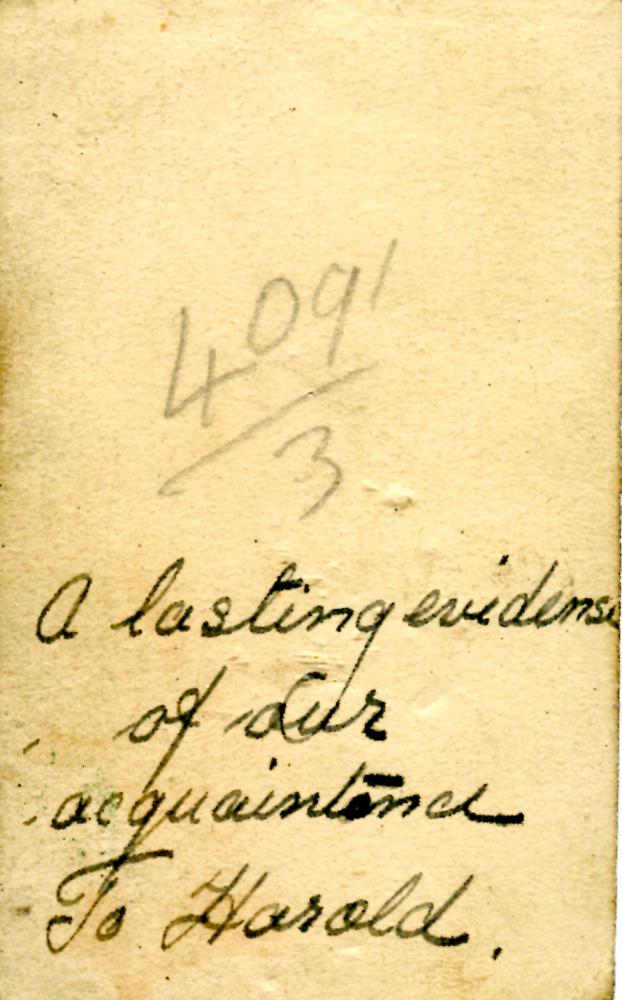 4091
3
A lasting evidense
of our
acquaintance
To Harold.